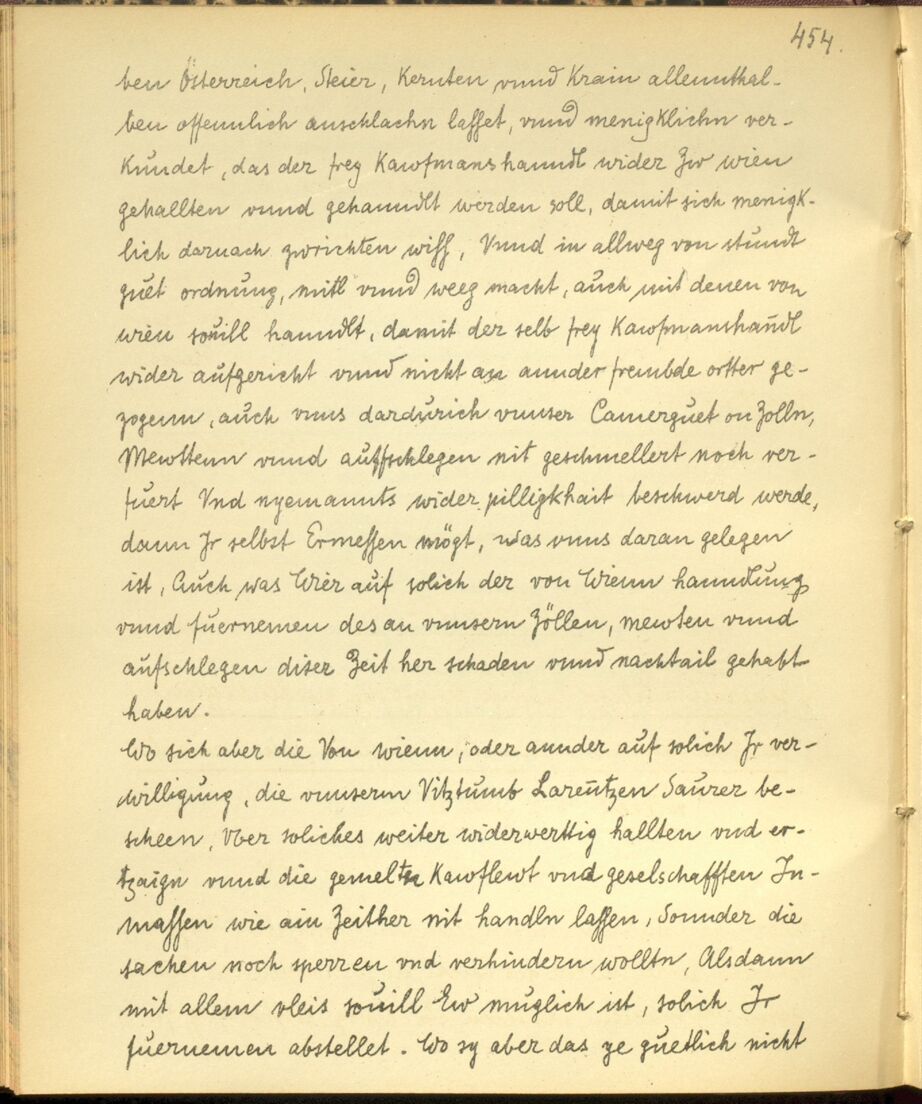 454.
ben Österreich, Steier, Kernten vnnd Krain allennthal-
ben offennlich anschlachn lasset, vnnd menigklichn ver-
kündet, das der frey Kawfmanshanndl wider Zw wien
gehallten vnnd gehanndlt werden soll, damit sich menigk-
lich darnach zwrichten wiss, Vnnd in allweg von stundt
guet ordnung, mitl vnnd weeg macht, auch mit denen von
wien souill hanndlt, damit der selb frey Kawfmanshandl
wider aufgericht vnnd nicht an annder frembde ortter ge-
zogenn, auch vnns dardurich vnnser Camerguet on Zolln,
Mewttenn vnnd auffschlegen nit geschmellert noch ver-
fuert Vnd nyemannts wider pilligkhait beschwerd werde,
dann Jr selbst Ermessen mögt, was vnns daran gelegen
ist, Auch was Wier auf solich der von Wienn hanndlung
vnnd fuernemen des an vnnsern Zöllen, mewten vnnd
aufschlegen diser Zeit her schaden vnnd nachtail gehabt
haben.
Wo sich aber die Von wienn, oder annder auf solich Jr ver-
willigung, die vnnserm Vitztumb Larentzen Saurer be-
scheen, Vber soliches weiter widerwerttig hallten vnd er-
tzaign vnnd die gemeltn Kawflewt vnd geselschafften In-
massen wie ain Zeither nit handln lassen, Sonnder die
sachen noch sperren vnd verhindern wolltn, Alsdann
mit allem vleis souill Ew muglich ist, solich Jr
fuernemen abstellet. Wo sy aber das ye guetlich nicht